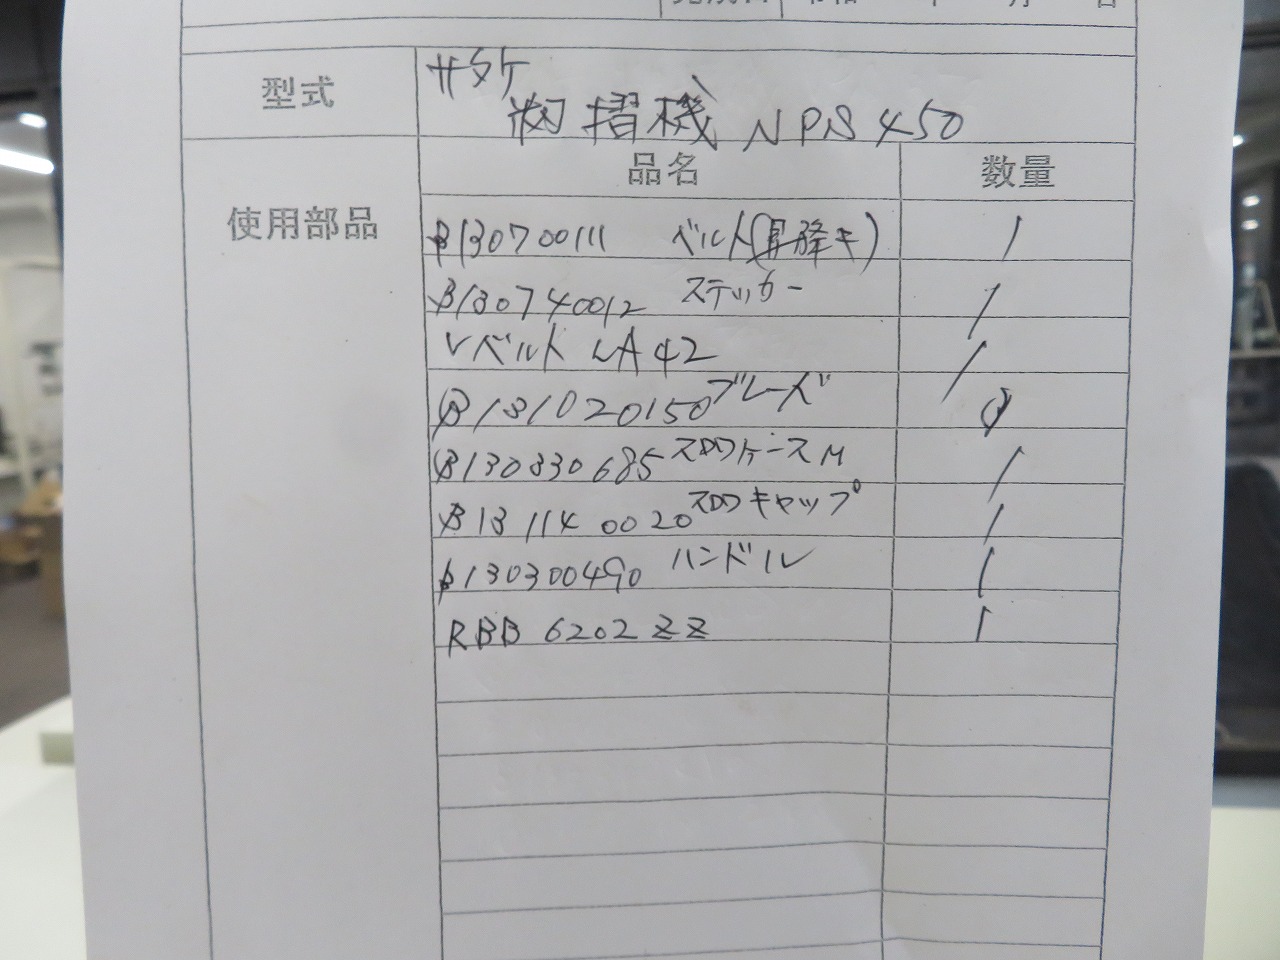 型式
サタケ
籾摺機 NPS450
使用部品
品名 数量
B130700111 ベルト(昇降キ) 1
B130740012 ステッカー 1
VベルトLA42 1
B131020150 ブレード
B130330685 スロワケースM 1
B131140020 スロワキャップ 1
B130300490 ハンドル 1
RBB 6202ZZ 1